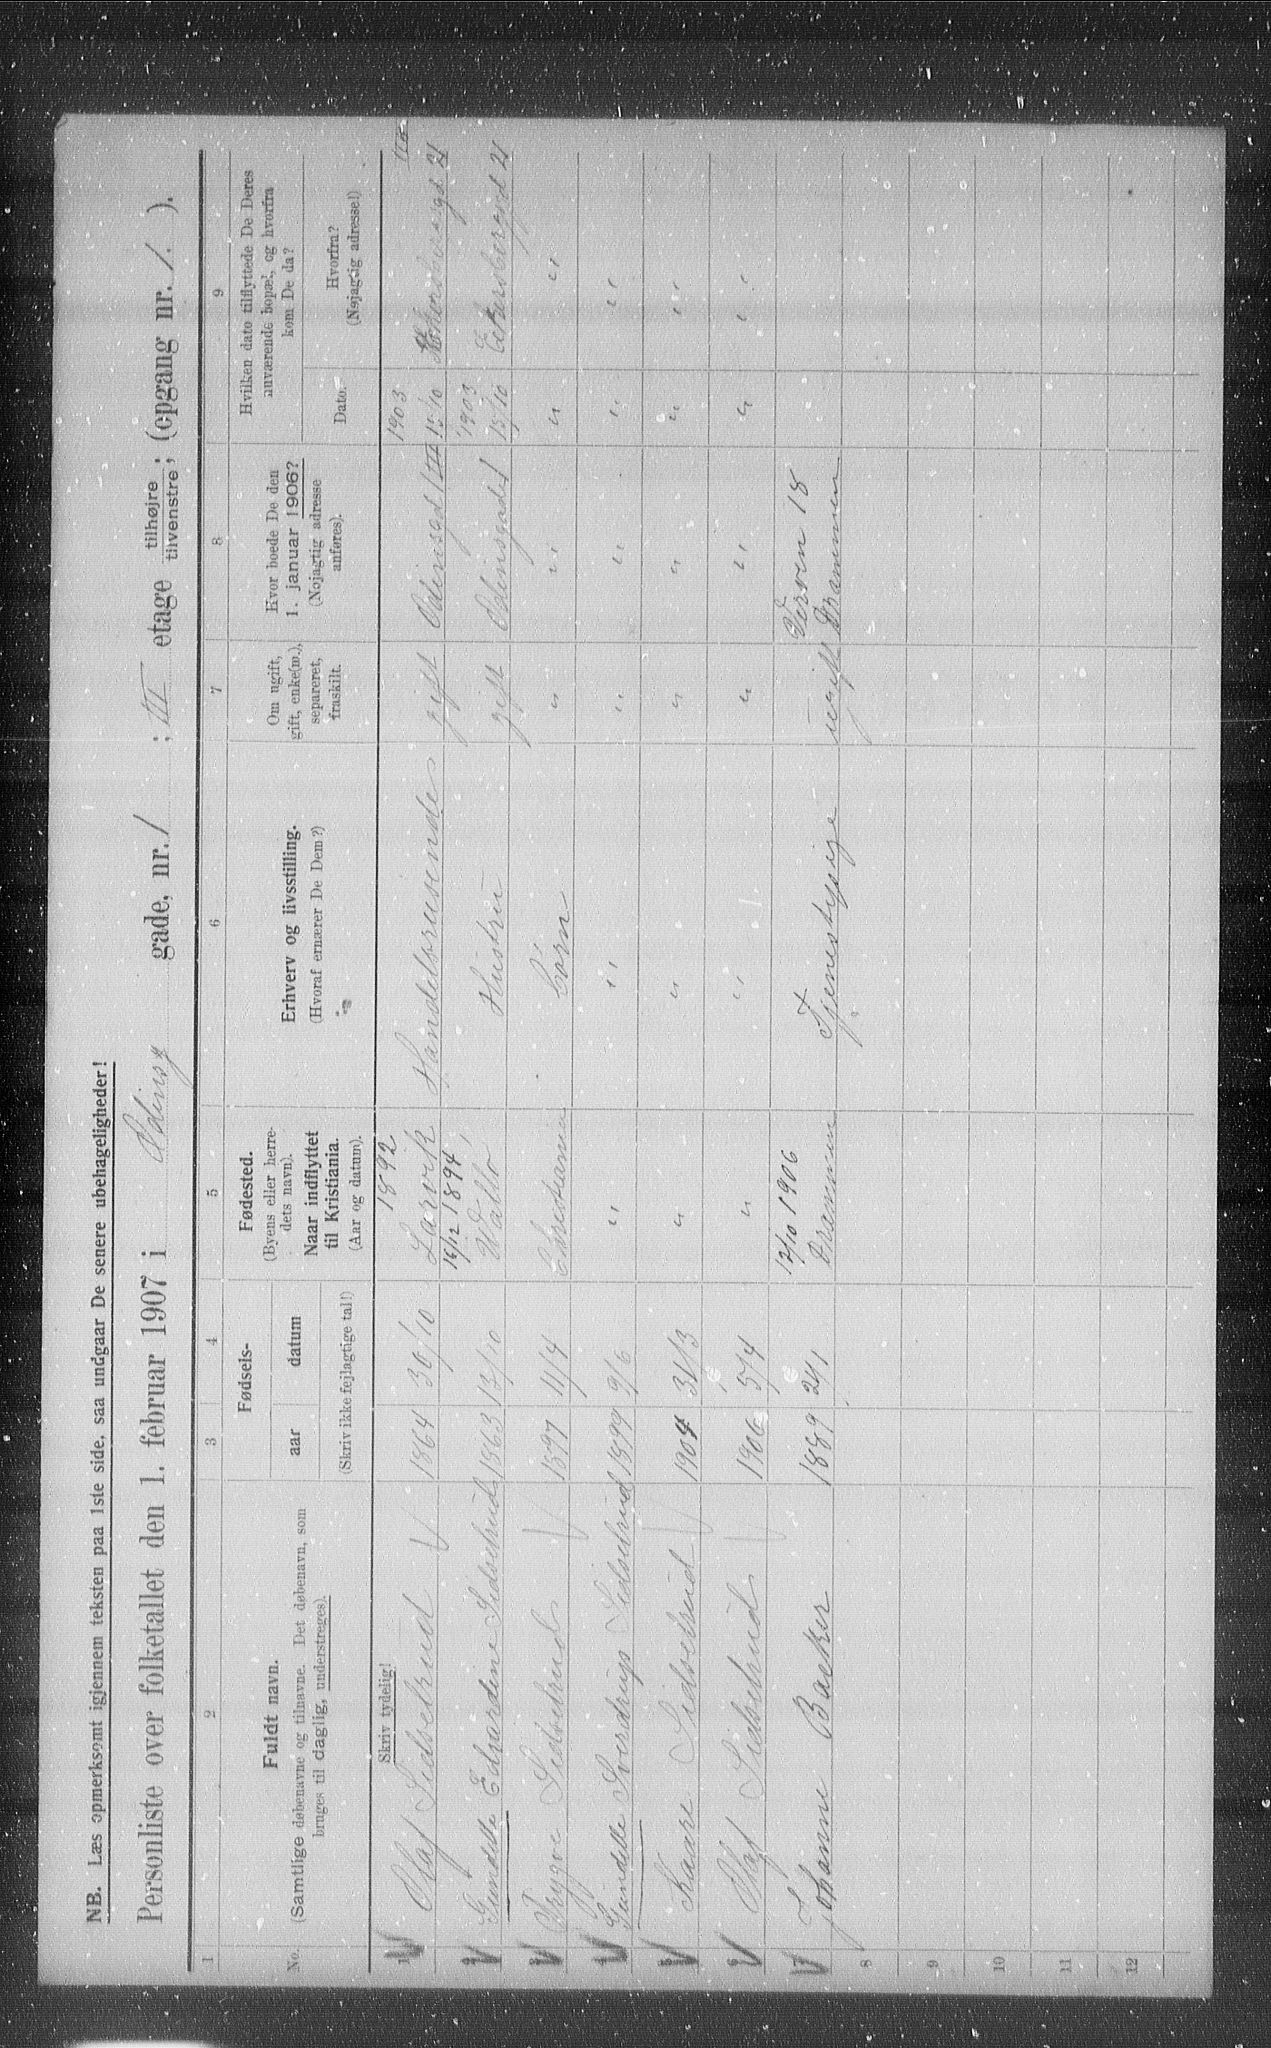 NB. Læs opmerksomt igjennem teksten paa 1ste side, saa undgaar De senere ubehageligheder!
Personliste over folketallet den 1. februar 1907 i Odinsg gade, nr. 1; III etage tilhøjre; tilvenstre; (opgang nr. 1. ).
1 2 3 4 5 6 7 8 9
No.
Fuldt navn.
(Samtlige døbenavne og tilnavne. Det døbenavn, som
bruges til daglig, understreges).
Fødsels-
aar datum
(Skriv ikke fejlagtige tal!)
Fødested.
(Byens eller herre-
dets navn).
Naar indflyttet
til Kristiania.
(Aar og datum).
Erhverv og livsstilling.
(Hvoraf ernærer De Dem?)
Om ugift,
gift, enke(m.),
separeret,
fraskilt.
Hvor boede De den
1. januar 1906?
(Nøjagtig adresse
anføres).
Hvilken dato tilflyttede De Deres
nuværende bopæl, og hvorfra
kom De da?
Dato.
Hvorfra?
(Nøjagtig adresse!)
Skriv tydelig!
1892 1903
1 Olaf Sidselrud 1864 30/10 Larvik Handelsreisende gift Odinsgd 1 III 15/10 21
16/12 1894 1903
Gundelle Edvardine Sidselrud 1863 13/10 gift Odinsgade 1 15/10 Eckersbergsgd 21
Trygve Sidselrud 1897 11/4 Christiania børn " " " "
Gundelle Sverdrup Sidselrud 1899 9/6 " " " " " "
Kaare Sidselrud 1904 31/3 " " " " " "
Olaf Sidselrud 1906 5/4 " " " " " "
12/10 1906 Verven 18
Johanne Baaker 1889 24/1 Drammen Tjenestepige ugift Drammen
8
9
10
11
12